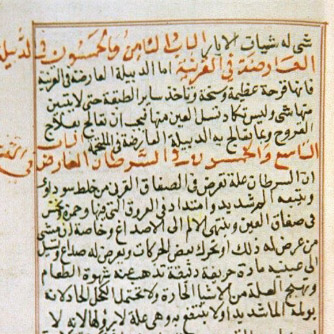 شى له شيات الابار الباب الثامن والخمسون فى الدبيلة
العارضة فى القرنية اما الدبيلة العارضة فى القرنية
فانها قرحة عظيمة وسخة وتاخذ سائر الطبقة حتى لا يتبين
منها شى وليس تكاد تسلم العين منها فيجب ان تعالج بعلاج
القروح وبما يعالج به الدبيلة العارضة فى الملتحمة الباب
التاسع والخمسون فى السرطان العارض فى
ان السرطان علة تعرض فى الصفاق القرنى من خلط سوداوى
ويتبعه الم شديد وامتداد فى العروق التى فيها وحمرة
فى صفاق العين وينتهى الالم الى الاصداغ وخاصة ان مشى
من عرض له ذلك او تحرك بعض الحركات ويعرض له صداع ويسيل
الى عينيه مادة حريفة دقيقة تذهب عنه شهوة الطعام
وتهيج العلة من الاشيا الحارة ولا يحتمل الكحل الحاد لانه
يولمه الما شديدا ولا ينتفع به وهى علة لا برو لها لانه لا